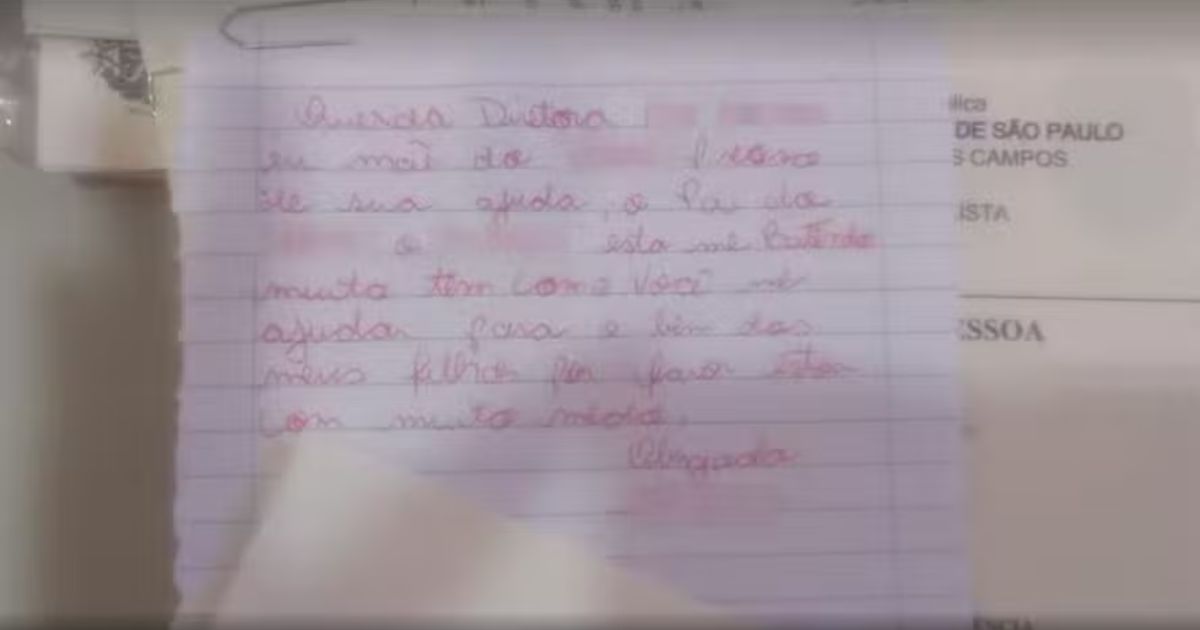 Querida Diretora
eu mãe do Preciso
de sua ajuda, o Pai do
e esta me Batendo
muito tem como Você me
ajudar para o bem dos
meus filhos por favor estou
com muito medo.
Obrigada
lica
DE SÃO PAULO
S CAMPOS
ISTA
ESSOA
ENCIA